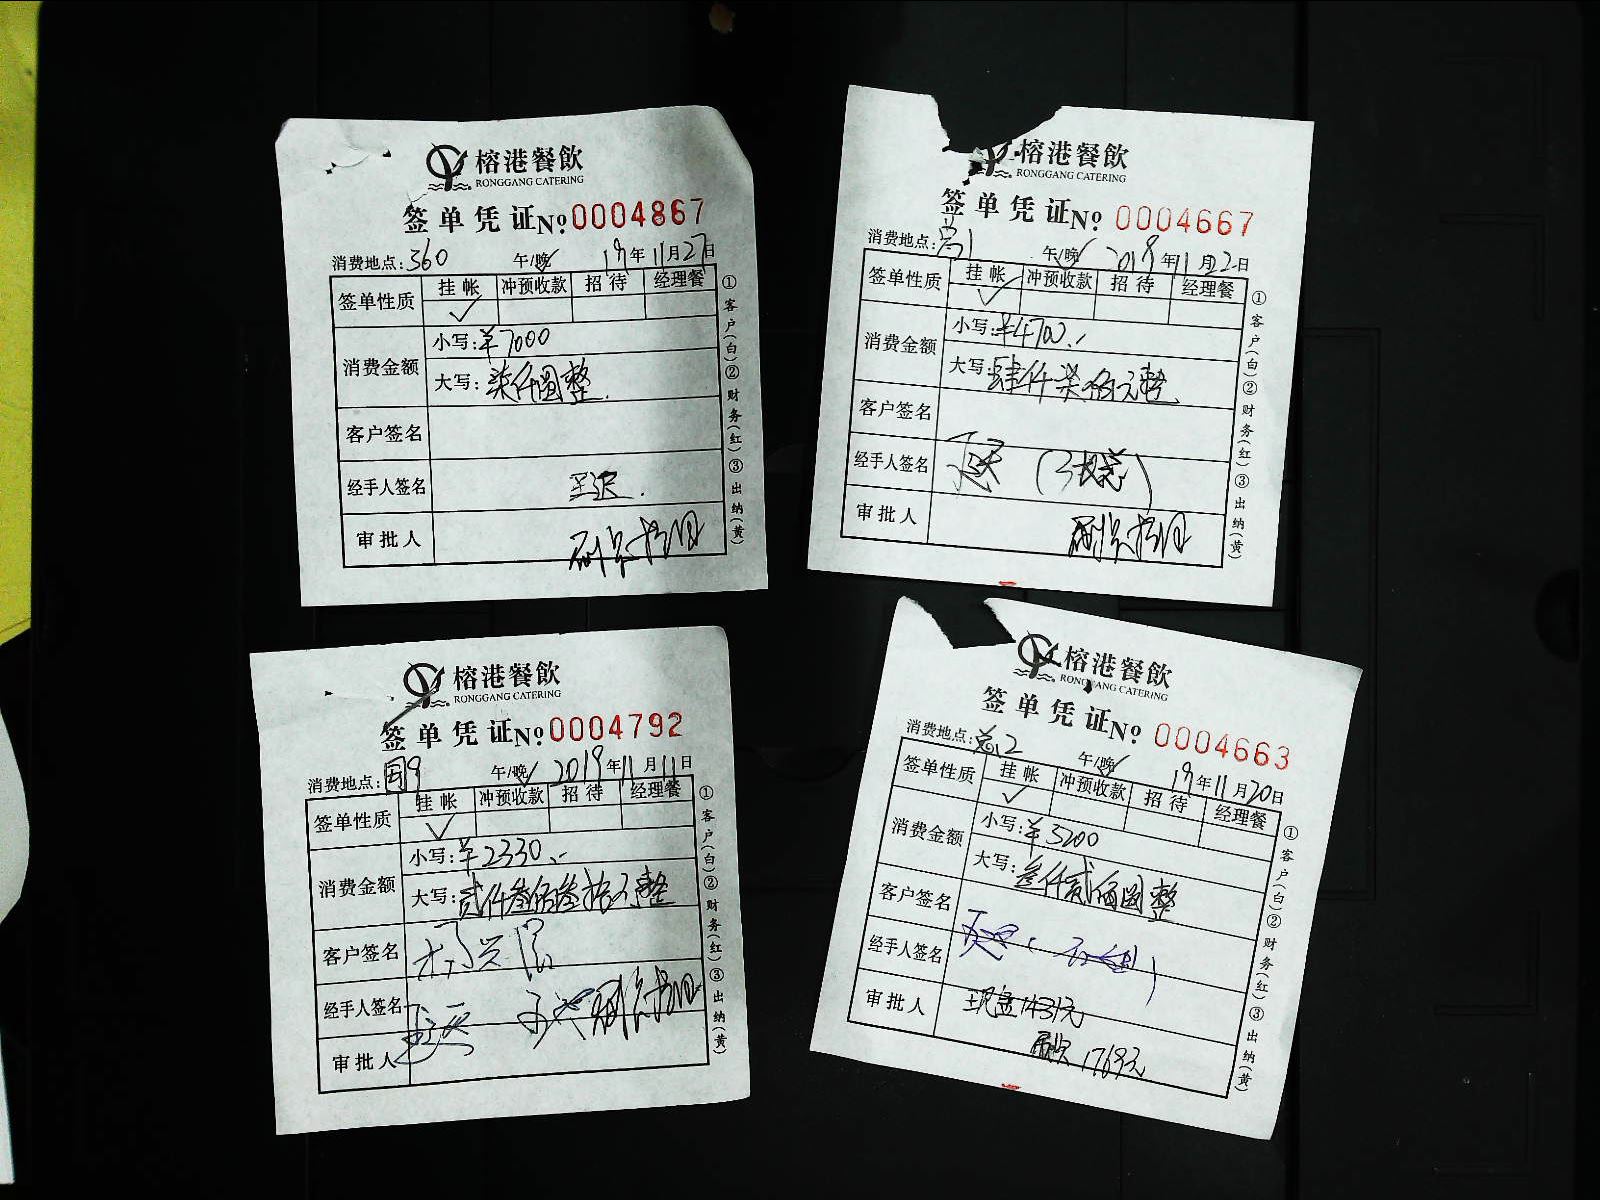 榕港餐飲
RONGGANG CATERING
签单凭证№0004867
消费地点:360 午/晚 19年11月27日
签单性质 挂帐 冲预收款 招待 经理餐
消费金额
小写:¥7000
大写:柒仟圆整
客户签名
经手人签名
审批人
①客户(白)②财务(红)③出纳(黄)
榕港餐飲
RONGGANG CATERING
签单凭证№0004667
消费地点: 午/晚 2019年11月12日
签单性质 挂帐 冲预收款 招待 经理餐
消费金额
小写:¥4700
大写:肆仟柒佰元整
客户签名
经手人签名
审批人
①客户(白)②财务(红)③出纳(黄)
榕港餐飲
RONGGANG CATERING
签单凭证№0004792
消费地点: 午/晚 2019年11月11日
签单性质 挂帐 冲预收款 招待 经理餐
消费金额
小写:¥2330
大写:贰仟叁佰叁拾元整
客户签名
经手人签名
审批人
①客户(白)②财务(红)③出纳(黄)
榕港餐飲
RONGGANG CATERING
签单凭证№0004663
消费地点: 午/晚 19年11月20日
签单性质 挂帐 冲预收款 招待 经理餐
消费金额
小写:¥3200
大写:叁仟贰佰圆整
客户签名
经手人签名
审批人 现金1431元
1769元
①客户(白)②财务(红)③出纳(黄)